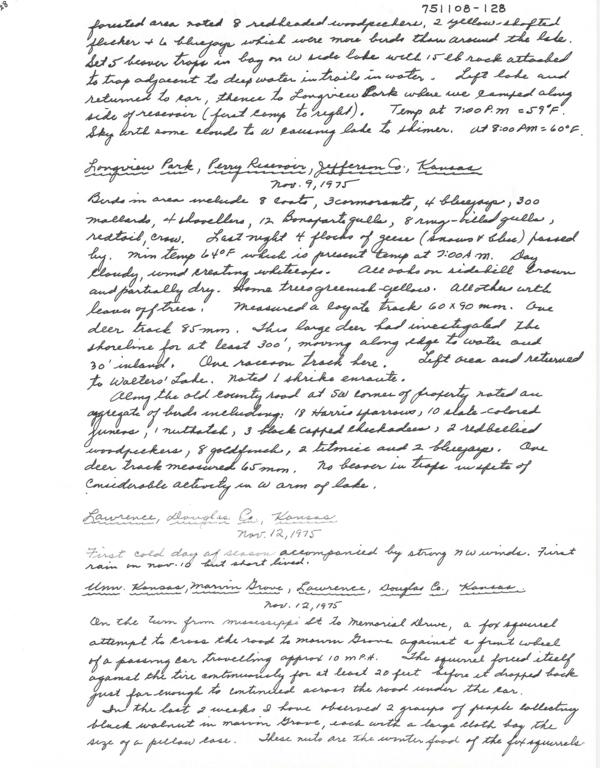 751108-128
forested area noted 8 redheaded woodpeckers, 2 yellow-shafted
flicker + 6 bluejays which were more birds than around the lake.
Set 5 beaver traps in bay on W side lake with 15 lb rock attached
to trap adjacent to deep water in trails in water. Left lake and
returned to car, thence to Longview Park where we camped along
side of reservoir (first camp to right). Temp at 7:00 P.M = 59°F.
Sky with some clouds to W causing lake to shimer. at 8:00 PM = 60°F.
Longview Park, Perry Reservoir, Jefferson Co., Kansas
Nov. 9, 1975
Birds in area include 8 coots, 3 cormorants, 4 bluejays, 300
mallards, 4 shovellers, 12 Bonaparte gulls, 8 ring-billed gulls,
redtail, crow. Last night 4 flocks of geese (snows & blue) passed
by. Min temp 64°F which is present temp at 7:00 A.M. Day
cloudy, wind creating whitecaps. All oaks on sidehill brown
and partially dry. Some trees greenish-yellow. All others with
leaves off trees. Measured a coyote track 60 x 90 mm. One
deer track 85 mm. This large deer had investigated the
shoreline for at least 300', moving along edge to water and
30' inland. One raccoon track here. Left area and returned
to Walters' Lake. Noted 1 shrike enroute.
Along the old county road at SW corner of property noted an
aggregate of birds including: 18 Harris sparrows, 10 slate-colored
juncos, 1 nuthatch, 3 black capped chickadees, 2 redbellied
woodpeckers, 8 goldfinch, 2 titmice and 2 bluejays. One
deer track measured 65 mm. No beaver in traps in spite of
considerable activity in W arm of lake.
Lawrence, Douglas Co., Kansas
Nov. 12, 1975
First cold day of season accompanied by strong NW winds. First
rain on Nov. 10 but short lived.
Univ. Kansas, Marvin Grove, Lawrence, Douglas Co., Kansas
Nov. 12, 1975
On the turn from Mississippi St to Memorial Drive, a fox squirrel
attempt to cross the road to Marvin Grove against a front wheel
of a passing car travelling approx 10 M.P.H. The squirrel forced itself
against the tire continuously for at least 20 feet before it dropped back
just far enough to continued across the road under the car.
In the last 2 weeks I have observed 2 groups of people collecting
black walnut in Marvin Grove, each with a large cloth bag the
size of a pillow case. These nuts are the winter food of the fox squirrels